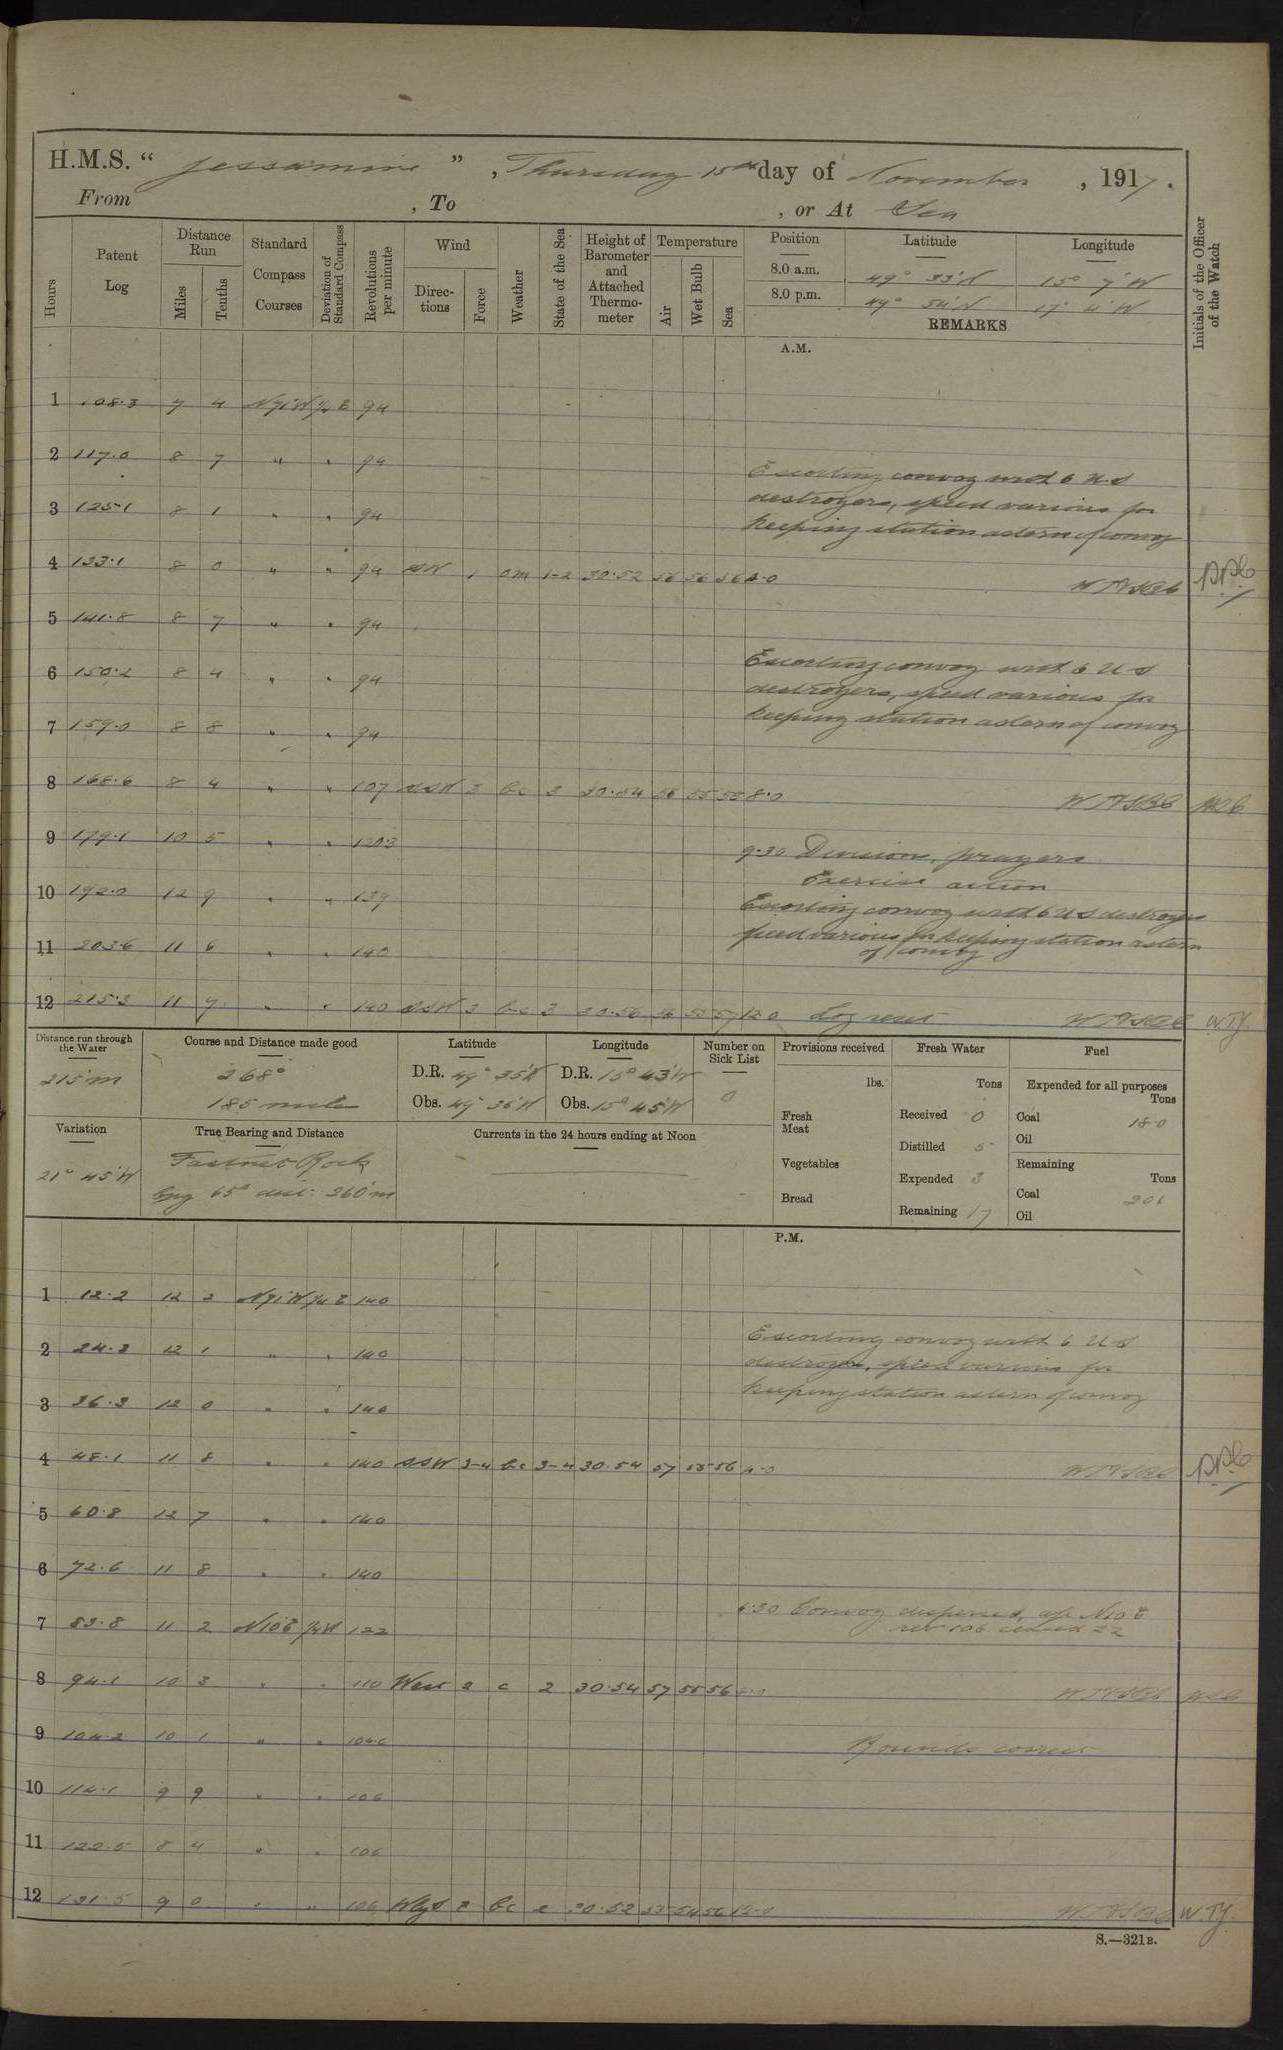 H.M.S. " Jessamine " , Thursday 15th day of November , 1917 .
From , To , or At Sea
Hours Patent Log Distance Run Miles Tenths Standard Compass Courses Deviation of Standard Compass Revolutions per minute Wind Directions Force Weather State of the Sea Height of Barometer and Attached Thermometer Temperature Air Wet Bulb Sea Position Latitude Longitude Initials of the Officer of the Watch
8.0 a.m. 49° 33'N 15° 7'W
8.0 p.m. 49° 54'N 17° 4'W
REMARKS
A.M.
1 108.3 7 4 N71W ¼ E 94
2 117.0 8 7 " " 94
Escorting convoy with 6 U.S
destroyers, speed various for
3 125.1 8 1 " " 94
keeping station astern of convoy
4 133.1 8 0 " " 94 SW 1 om 1-2 30.52 56 56 56 4.0
5 141.8 8 7 " " 94
6 150.2 8 4 " " 94
Escorting convoy with 6 U S
destroyers, speed various for
keeping station astern of convoy
7 159.0 8 8 " " 94
8 168.6 8 4 " " 107 SSW 3 bc 3 30.54 56 55 55 8.0
9 179.1 10 5 " " 120.3
9.30 Divisions, prayers
Exercise action
10 192.0 12 9 " " 139
Escorting convoy with 6 U S destroyers
speed various for keeping station astern
of convoy
11 203.6 11 6 " " 140
12 215.3 11 7 " " 140 SSW 3 bc 3 30.56 56 55 57 12.0 Log reset W.TY
Distance run through the Water Course and Distance made good Latitude Longitude Number on Sick List Provisions received Fresh Water Fuel
215'm 268° 185 miles
D.R. 49° 35'N D.R. 15° 43'W
Obs. 49° 36'N Obs. 15° 45'W 0
lbs. Tons Expended for all purposes Tons
Fresh Meat Received 0 Coal 18.0
Distilled 5 Oil
Variation True Bearing and Distance Currents in the 24 hours ending at Noon
21° 45'W Fastnet Rock
brg 65° dist. 260'm
Vegetables Expended 3 Remaining Tons
Bread Remaining 17 Coal 201
Oil
P.M.
1 12.2 12 2 N71W ¼ E 140
2 24.3 12 1 " " 140
Escorting convoy with 6 U S
destroyers, speed various for
keeping station astern of convoy
3 36.3 12 0 " " 140
4 48.1 11 8 " " 140 SSW 3-4 bc 3-4 30.54 57 55 56 4.0
5 60.8 12 7 " " 140
6 72.6 11 8 " " 140
6.30 Convoy dispersed, a/c N10E
7 83.8 11 2 N10E ¼W 122
8 94.1 10 3 " " 110 West 2 c 2 30.54 57 55 56 8.0
9 104.2 10 1 " " 104.6
Rounds correct
10 114.1 9 9 " " 106
11 122.5 8 4 " " 106
12 131.5 9 0 " " 106 2 bc 2 30.52 55 54 56 12.0 W.TY.
S.—321B.